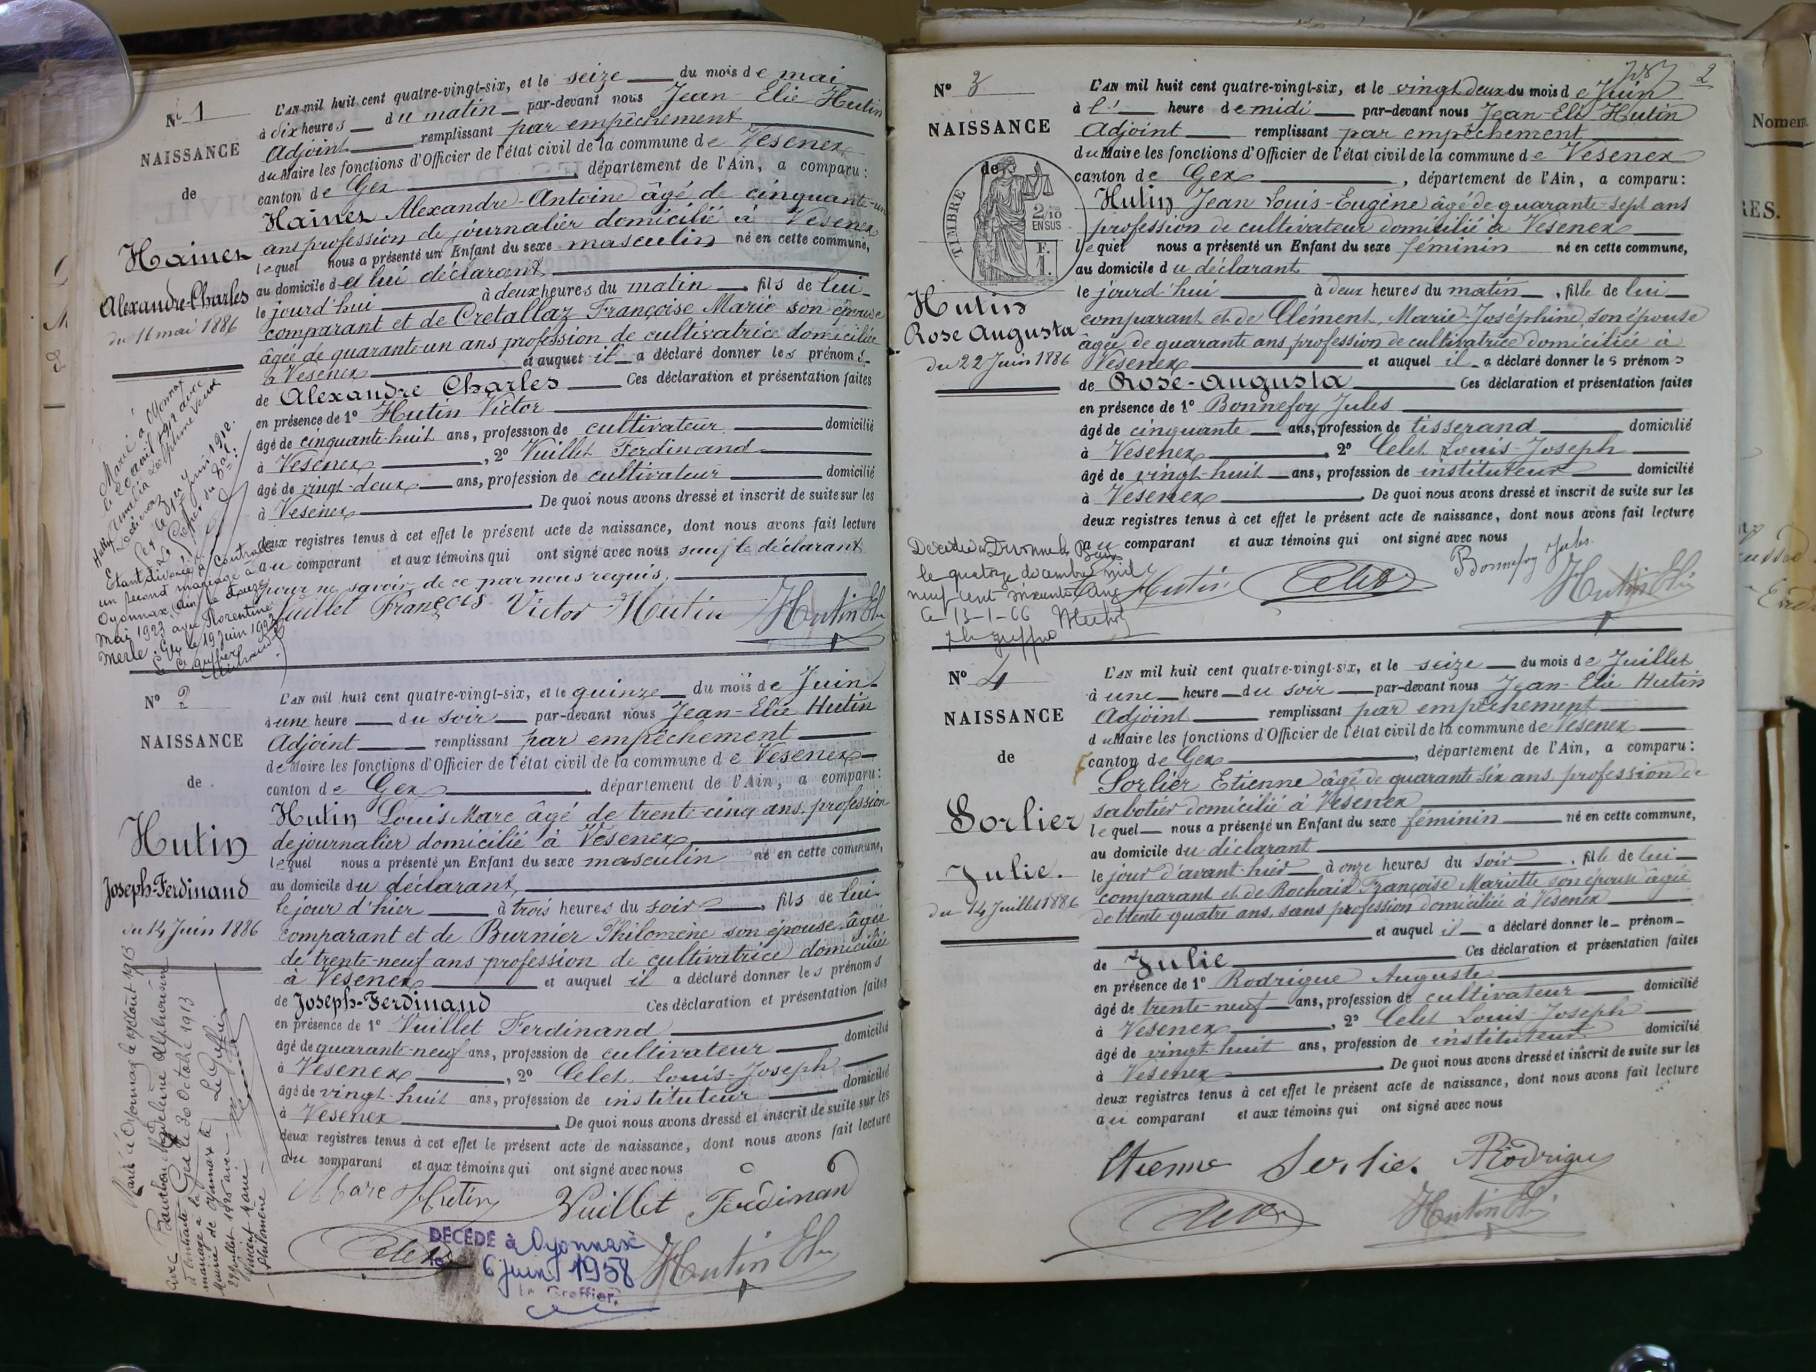 N° 1
NAISSANCE
de
Hainer
Alexandre-Charles
du 16 mai 1886
L'AN mil huit cent quatre-vingt-six, et le seize du mois de mai
à dix heures du matin par-devant nous Jean-Elie Hutin
Adjoint remplissant par empêchement
du Maire les fonctions d'Officier de l'état civil de la commune de Vesenex
canton de Gex, département de l'Ain, a comparu:
Hainer Alexandre-Antoine âgé de cinquante-un
ans profession de journalier domicilié à Vesenex
lequel nous a présenté un Enfant du sexe masculin né en cette commune,
au domicile de lui déclarant
le jourd'hui à deux heures du matin, fils de lui
comparant et de Cretallaz Françoise Marie son épouse
âgée de quarante-un ans profession de cultivatrice domiciliée
à Vesenex et auquel il a déclaré donner les prénoms
de Alexandre Charles Ces déclaration et présentation faites
en présence de 1° Hutin Victor
âgé de cinquante-huit ans, profession de cultivateur domicilié
à Vesenex, 2° Vuillet Ferdinand
âgé de vingt-deux ans, profession de cultivateur domicilié
à Vesenex. De quoi nous avons dressé et inscrit de suite sur les
deux registres tenus à cet effet le présent acte de naissance, dont nous avons fait lecture
au comparant et aux témoins qui ont signé avec nous sauf le déclarant
pour ne savoir de ce par nous requis.
Vuillet François Victor Hutin Hutin Elie
Marié à Oyonnax
le 20 avril 1912 avec
Amélia Joséphine
Gex le juin 1912.
Etant divorcé, a contracté
un second mariage à
Oyonnax (Ain) le douze
Mai 1923 avec Florentine
Merle. Gex le 19 juin 1923
Le greffier
N° 2
NAISSANCE
de
Hutin
Joseph-Ferdinand
du 14 Juin 1886
L'AN mil huit cent quatre-vingt-six, et le quinze du mois de Juin
à une heure du soir par-devant nous Jean-Elie Hutin
Adjoint remplissant par empêchement
de Maire les fonctions d'Officier de l'état civil de la commune de Vesenex
canton de Gex, département de l'Ain, a comparu:
Hutin Louis Marc âgé de trente-cinq ans, profession
de journalier domicilié à Vesenex
lequel nous a présenté un Enfant du sexe masculin né en cette commune,
au domicile du déclarant
le jour d'hier à trois heures du soir, fils de lui
comparant et de Burnier Philomène son épouse âgée
de trente-neuf ans profession de cultivatrice domiciliée
à Vesenex et auquel il a déclaré donner les prénoms
de Joseph-Ferdinand Ces déclaration et présentation faites
en présence de 1° Vuillet Ferdinand
âgé de quarante-neuf ans, profession de cultivateur domicilié
à Vesenex, 2° Celet Louis-Joseph
âgé de vingt-huit ans, profession de instituteur domicilié
à Vesenex. De quoi nous avons dressé et inscrit de suite sur les
deux registres tenus à cet effet le présent acte de naissance, dont nous avons fait lecture
au comparant et aux témoins qui ont signé avec nous
Marc Hutin Vuillet Ferdinand
Celet Hutin Elie
DÉCÉDÉ à Oyonnax
le 6 juin 1958
Le Greffier,
Marié à Oyonnax le août 1913
avec
Gex le 30 Octobre 1913
Le Greffier
N° 3
NAISSANCE
de
TIMBRE
2/10 EN SUS
F. 1.
Hutin
Rose Augusta
du 22 Juin 1886
2
L'AN mil huit cent quatre-vingt-six, et le vingt deux du mois de Juin
à l' heure de midi par-devant nous Jean-Elie Hutin
Adjoint remplissant par empêchement
du Maire les fonctions d'Officier de l'état civil de la commune de Vesenex
canton de Gex, département de l'Ain, a comparu:
Hutin Jean Louis-Eugène âgé de quarante-sept ans
profession de cultivateur domicilié à Vesenex
lequel nous a présenté un Enfant du sexe féminin né en cette commune,
au domicile du déclarant
le jourd'hui à deux heures du matin, fille de lui
comparant et de Clément, Marie-Joséphine, son épouse
âgée de quarante ans profession de cultivatrice domiciliée à
Vesenex et auquel il a déclaré donner les prénoms
de Rose-Augusta Ces déclaration et présentation faites
en présence de 1° Bonnefoy Jules
âgé de cinquante ans, profession de tisserand domicilié
à Vesenex, 2° Celet Louis-Joseph
âgé de vingt-huit ans, profession de instituteur domicilié
à Vesenex. De quoi nous avons dressé et inscrit de suite sur les
deux registres tenus à cet effet le présent acte de naissance, dont nous avons fait lecture
au comparant et aux témoins qui ont signé avec nous
Hutin Celet Bonnefoy Jules
Hutin Elie
Décédée à Divonne les Bains
le quatorze décembre mil
neuf cent soixante cinq
le 13-1-66
N° 4
NAISSANCE
de
Sorlier
Julie.
du 14 Juillet 1886
L'AN mil huit cent quatre-vingt-six, et le seize du mois de Juillet
à une heure du soir par-devant nous Jean-Elie Hutin
Adjoint remplissant par empêchement
du Maire les fonctions d'Officier de l'état civil de la commune de Vesenex
canton de Gex, département de l'Ain, a comparu:
Sorlier Etienne âgé de quarante six ans profession de
sabotier domicilié à Vesenex
lequel nous a présenté un Enfant du sexe féminin né en cette commune,
au domicile du déclarant
le jour d'avant-hier à onze heures du soir, fille de lui
comparant et de Rochaix Françoise Mariette son épouse âgée
de trente quatre ans, sans profession domiciliée à Vesenex
et auquel il a déclaré donner le prénom
de Julie Ces déclaration et présentation faites
en présence de 1° Rodrigue Auguste
âgé de trente-neuf ans, profession de cultivateur domicilié
à Vesenex, 2° Celet Louis-Joseph
âgé de vingt-huit ans, profession de instituteur domicilié
à Vesenex. De quoi nous avons dressé et inscrit de suite sur les
deux registres tenus à cet effet le présent acte de naissance, dont nous avons fait lecture
au comparant et aux témoins qui ont signé avec nous
Etienne Sorlier. ARodrigue
Celet Hutin Elie